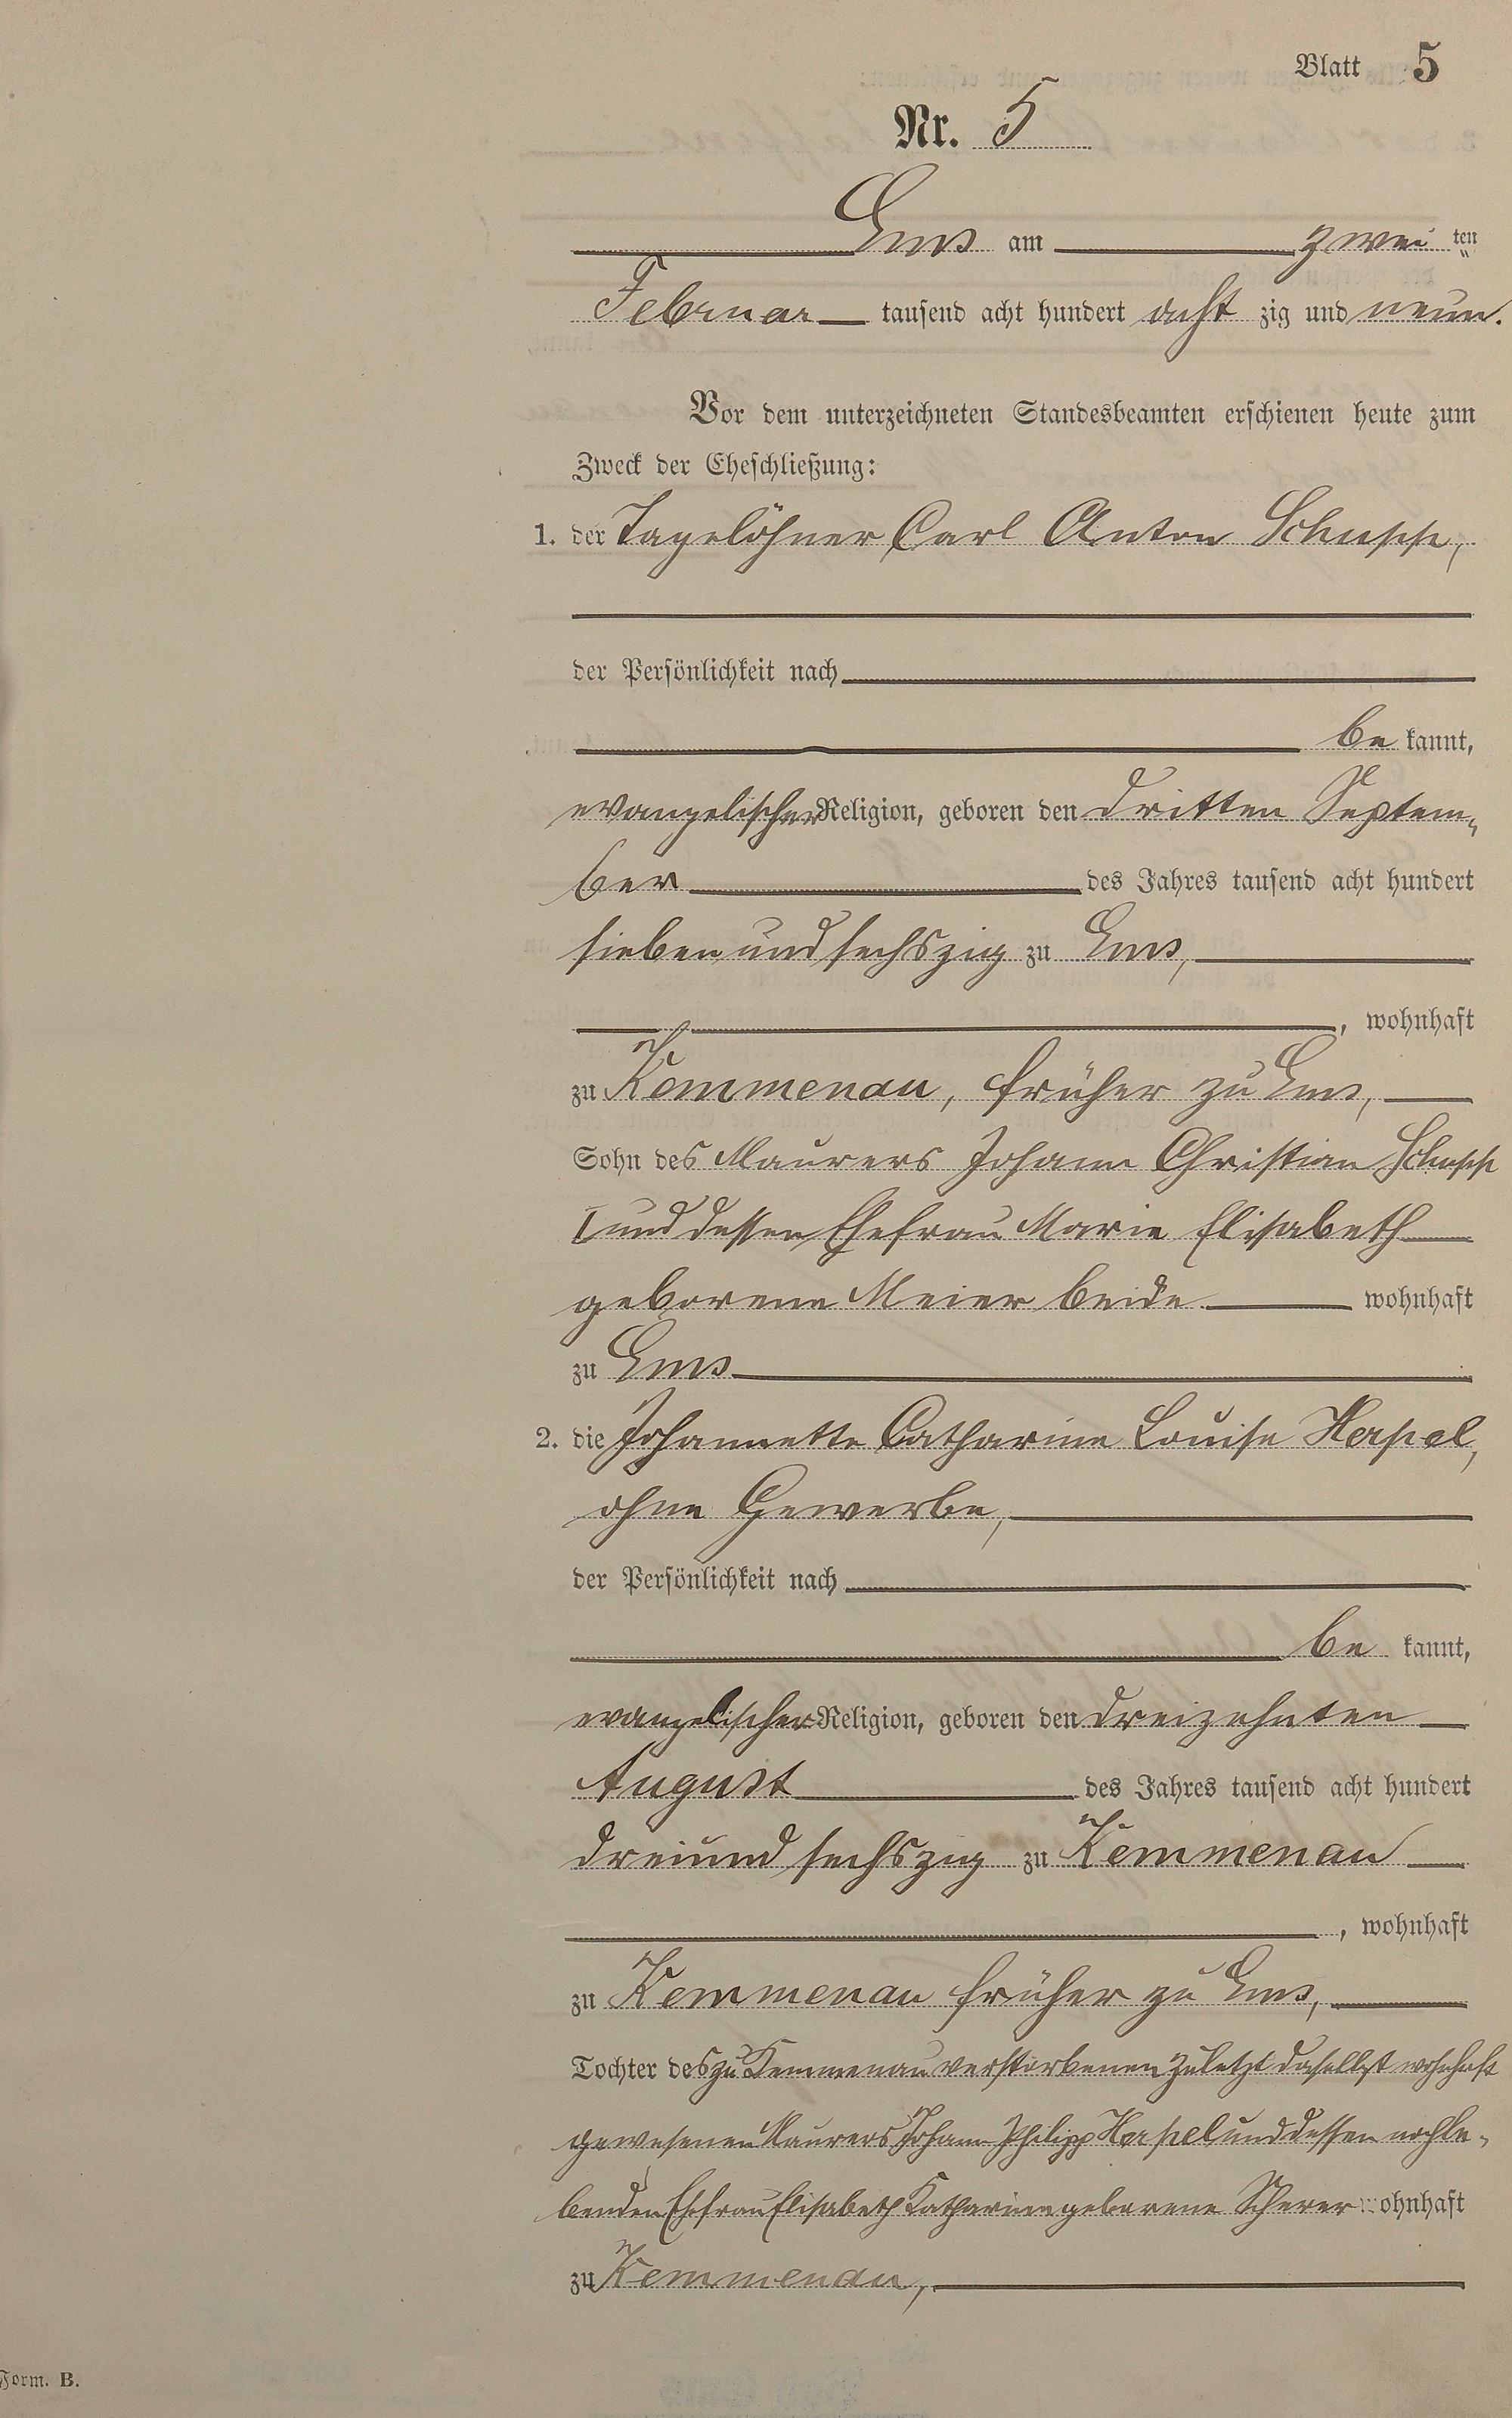 Blatt 5
Nr. 5
Ems am zwei ten
Februar tausend acht hundert acht zig und neun.
Vor dem unterzeichneten Standesbeamten erschienen heute zum
Zweck der Eheschließung:
1. der Tagelöhner Carl Anton Schupp,
der Persönlichkeit nach
be kannt,
evangelischer Religion, geboren den dritten Septem-
ber des Jahres tausend acht hundert
sieben und sechszig zu Ems,
, wohnhaft
zu Kemmenau, früher zu Ems,
Sohn des Maurers Johann Christian Schupp
I und dessen Ehefrau Marie Elisabeth
geborene Meier beide wohnhaft
zu Ems
2. die Johannette Catharine Louise Haspel,
ohne Gewerbe,
der Persönlichkeit nach
be kannt,
evangelischer Religion, geboren den dreizehnten
August des Jahres tausend acht hundert
dreiund sechszig zu Kemmenau
, wohnhaft
zu Kemmenau früher zu Ems,
Tochter des zu Kemmenau verstorbenen zuletzt daselbst wohnhaft
gewesenen Maurers Johann Philipp Haspel und dessen nochle-
benden Ehefrau Elisabeth Katharine geborene Scherer wohnhaft
zu Kemmenau,
Form. B.